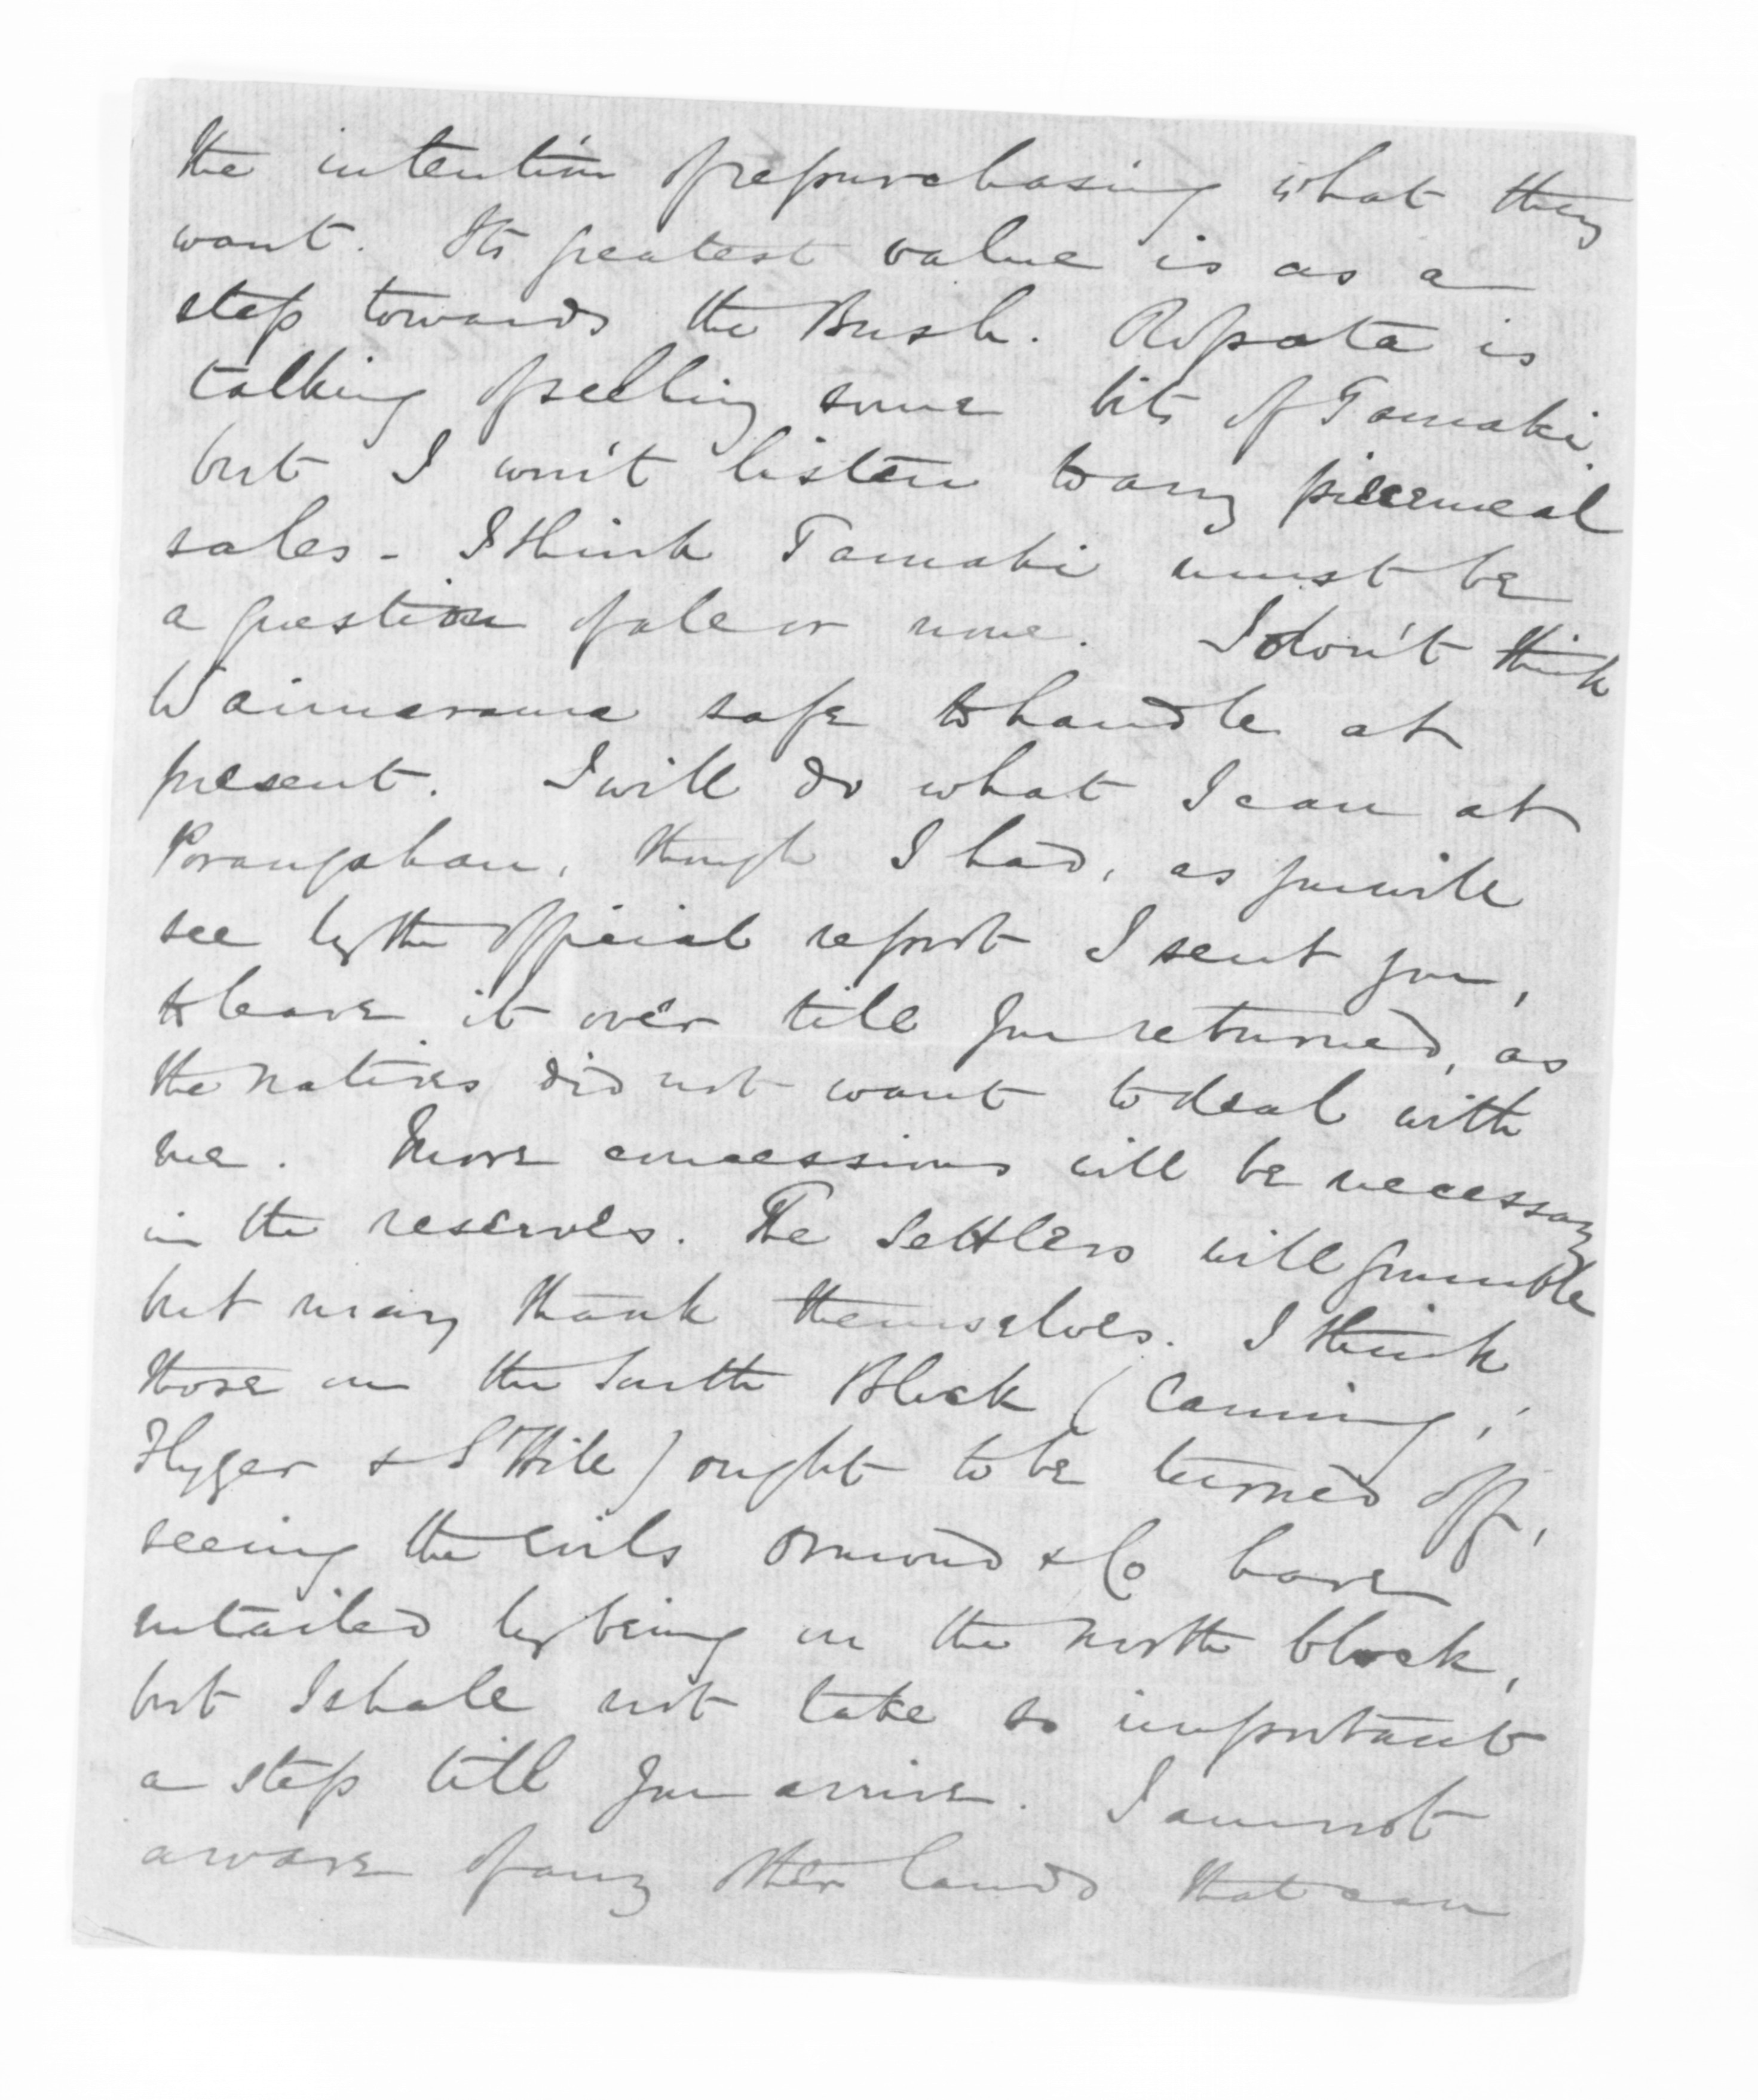 the intention of repurchasing what they
want. Its greatest value is as a
step towards the Bush. Ropata is
talking of selling some bits of Tamaki.
but I won't listen to any piecemeal
sales - I think Tamaki must be
a question of all or none. I don't think
Waimarama safe to handle at
present. I will do what I can at
Porangahau, though I had, as you will
see by the official report I sent you,
to leave it over till you returned, as
the natives did not want to deal with
me. More concessions will be necessary
in the reserves. The Settlers will grumble
but may thank themselves. I think
those on the South Block (Canning,
& St Hill) ought to be turned off,
seeing the evils Ormond & Co have
entailed by being on the North block,
but I shall not take so important
a step till you arrive. I am not
aware of any other lands that can